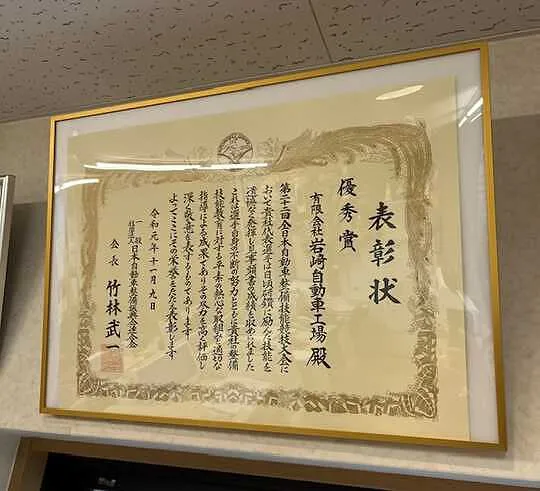 表彰状
優秀賞
有限会社 岩崎自動車工場 殿
第二十二回全日本自動車整備技能競技大会に
おいて貴社代表選手は日頃研鑽に励んだ技能を
遺憾なく発揮し見事頭書の成績を収められました
これは選手自身の不断の努力とともに貴社の整備
技能教育に対する平素の熱心な取組みと適切な
指導による成果でありその功力を高く評価し
深く敬意を表するものであります
よってここにその栄誉をたたえ表彰します
令和元年十一月九日
一般社団法人 日本自動車整備振興会連合会
会長 竹林武一